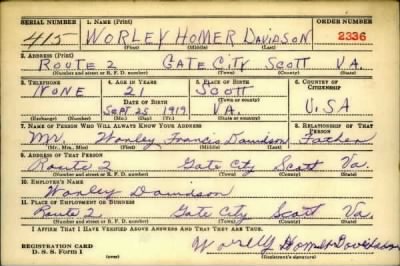 SERIAL NUMBER 1. NAME (Print) ORDER NUMBER
415 WORLEY HOMER DAVIDSON 2336
(First) (Middle) (Last)
2. ADDRESS (Print)
ROUTE 2 GATE CITY SCOTT VA.
(Number and street or R. F. D. number) (Town) (County) (State)
3. TELEPHONE 4. AGE IN YEARS 5. PLACE OF BIRTH 6. COUNTRY OF CITIZENSHIP
NONE 21 SCOTT
(Town or county)
DATE OF BIRTH
SEPT 25 1919 VA. U.S.A
(Exchange) (Number) (Mo.) (Day) (Yr.) (State or country)
7. NAME OF PERSON WHO WILL ALWAYS KNOW YOUR ADDRESS 8. RELATIONSHIP OF THAT PERSON
Mr. Worley Francis Davidson Father
(Mr., Mrs., Miss) (First) (Middle) (Last)
9. ADDRESS OF THAT PERSON
Route 2 Gate City Scott Va.
(Number and street or R. F. D. number) (Town) (County) (State)
10. EMPLOYER'S NAME
Worley Davidson
11. PLACE OF EMPLOYMENT OR BUSINESS
Route 2 Gate City Scott Va.
(Number and street or R. F. D. number) (Town) (County) (State)
I AFFIRM THAT I HAVE VERIFIED ABOVE ANSWERS AND THAT THEY ARE TRUE.
REGISTRATION CARD
D. S. S. FORM 1 Worely Homer Davidson
(Registrant's signature)